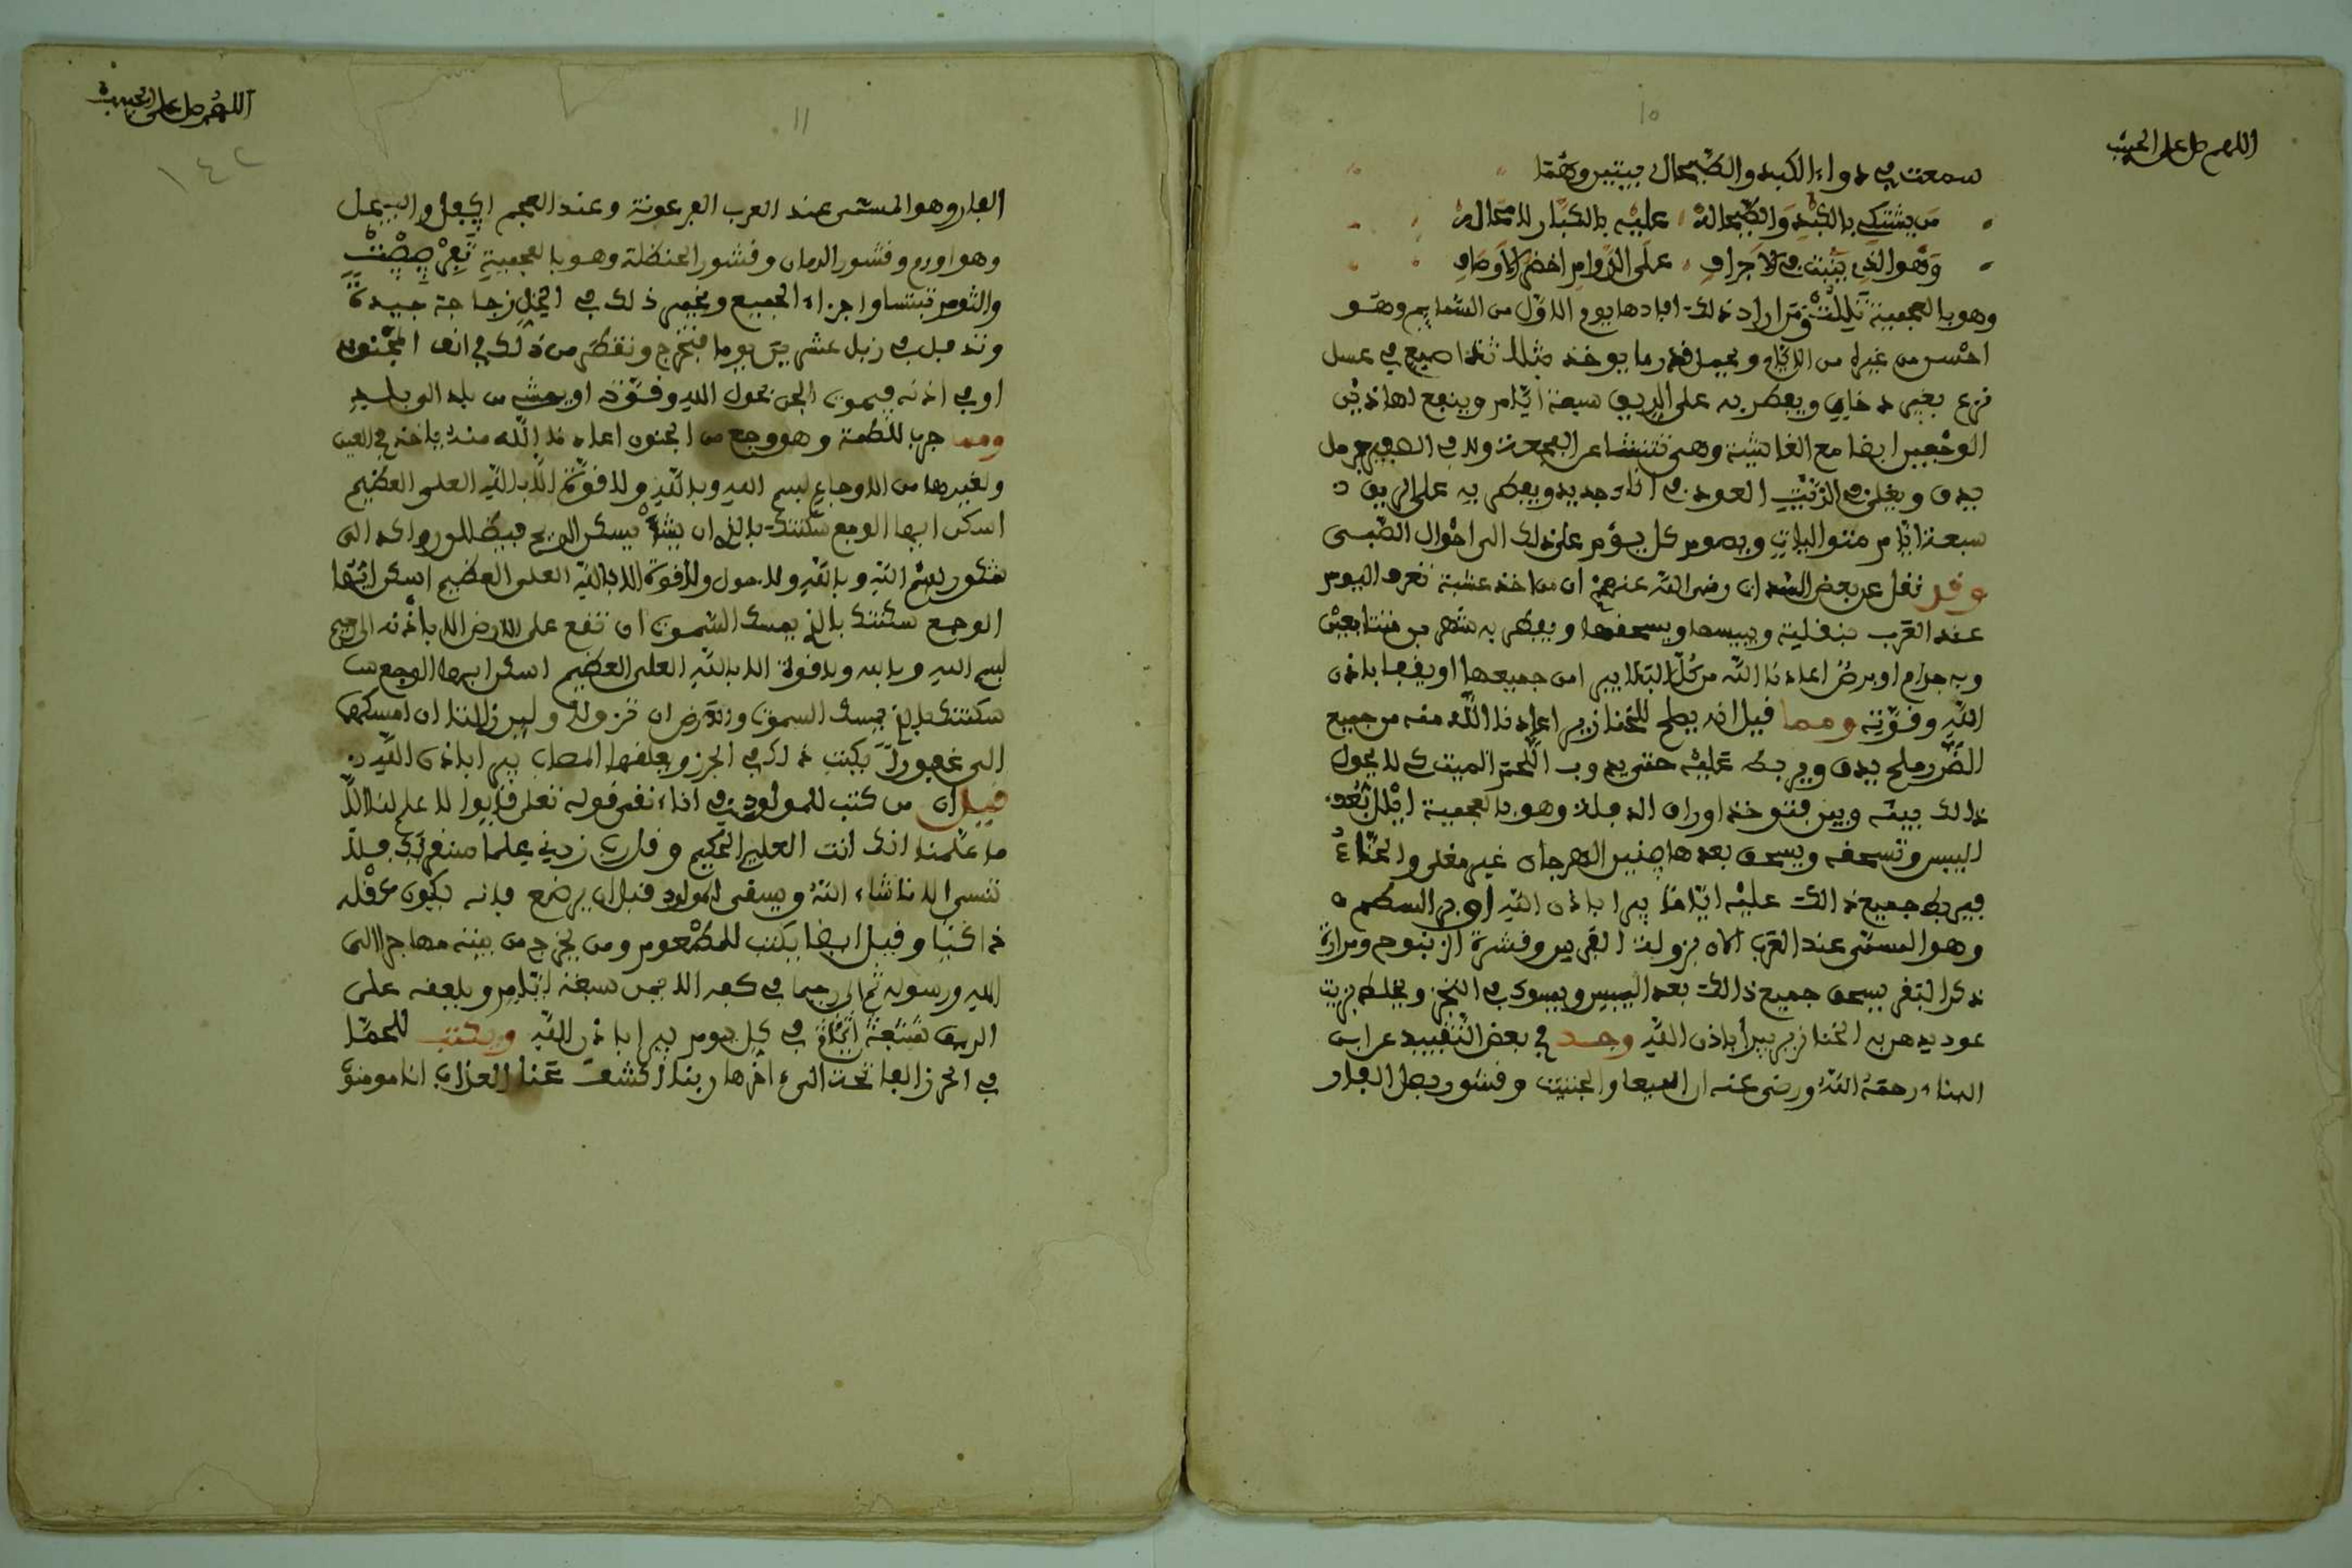 اللهم صل على الحبيب
10
سمعت في دواء الكبد والطيحال بيتين وهما
من يشتكي بالكبد والطيحاله عليه بالكبار لا محاله
وهو الذي ينبت في الاجراف على الدوام اخضر الاوصاف
وهو بالعجمية تيللت ومن اراد ذلك افادها يوم الاول من السمايم وهو
احسن من غيره من الايام ويجعل قدر ما يوخذ مثلا ثلث اصيع في عسل
نزع بغير دخان ويفطر به على الريق سبعة ايام وينفع لهاذين
الوجعين ايضا مع الغاشية وهي تنشا عن العجعة ولد في الصيف حرمل
يدق ويغلى في الزيت العود في اناء جديد ويفطر به على الريق
سبعة ايام متواليات ويصوم كل يوم على ذلك الى احوال الصبي
وقد نقل عن بعض السدات رضي الله عنهم ان من اخذ عشبة تعرف اليوم
عند العرب بنفلية وييبسها ويسحقها ويفطر به شهرين متتابعين
وبه جذام او برص اعاذنا الله من كل البلايا امن جميعها او يفيها باذن
الله وقوته ومما قيل انه يصلح للخنازير اعاذنا الله منه من جميع
الضرر ملح يدق ويربط عليه حتى يذوب اللحم الميت كي لا يحول
ذلك بينه وبين فتوخذ اوراق الدفلة وهو بالعجمية اليل بعد
اليبس وتسحقه ويسحق بعدها صنير المرجان غير مغلى والحناء
فيربط جميع ذالك عليه اياما يبرا باذن الله او مر السطم
وهو المسمى عند العرب الاه فزولة القرمير وقشرة الزنبوج ومرارة
ذكر البقر يسحق جميع ذالك بعد اليبيس ويسوك في الخز ويخلط بزيت
عود يدهر به الخنازير يبرأ باذن الله وجد في بعض التقييد عن ابن
البناء رحمه الله ورضي عنه ان الميعا والحنتيت وقشور بصل الفار
اللهم صل على الحبيب
11
١٤٢
الفار وهو المسمى عند العرب الفرعونة وعند العجم اكفيل والبصل
وهو اورم وقشور الرمان وقشور الحنظلة وهو بالعجمية تفرصيصت
والثوم تيتساوا جزاء الجميع ويخمر ذلك في الخل زجاجة جيدة
وتدفن في زبل عشرين يوما فتخرج ونقطر من ذلك في انف المجنون
او في اذنه فيموت الجن بحول الله وقوته او يمش من بلد الى بلد
ومما جرب للطمة وهو وجع من الجنون اعاذنا الله منه ياخذ في العين
ولغيرها من الاوجاع بسم الله وبالله ولا قوة الا بالله العلي العظيم
اسكن ايها الوجع سكنتك بالذي ان يشا يسكن الريح فيظللن رواكد الى
شكور بسم الله وبالله ولا حول ولا قوة الا بالله العلي العظيم اسكن ايها
الوجع سكنتك بالذي يمسك السموت ان تقع على الارض الا باذنه الى رحيم
بسم الله وبالله ولا قوة الا بالله العلي العظيم اسكن ايها الوجع
سكنتك بالذي يمسك السموت والارض ان تزولا ولين زالتا ان امسكهما
الى غفورا يكتب ذلك في الحرز ويعلقها المصاب يبرا باذن الله
قيل ان من كتب للمولود في اناء نقى قوله تعلى قالوا لا علم لنا الا
ما علمتنا انك انت العليم الحكيم وقل رب زدني علما سنقريك فلا
تنسى الا ما شاء الله ويسقى المولود قبل ان يرضع فانه يكون عقله
ذاكيا وقيل ايضا يكتب للمطعوم ومن يخرج من بيته مهاجرا الى
الله ورسوله ثم الى رحيما في كفه الايمن سبعة ايام ويلعقه على
الريق سبعة ايام في كل يوم يبرا باذن الله ويكتب للحما
في الحرز الفاتحة الى اخرها ربنا اكشف عنا العذاب انا مومنون